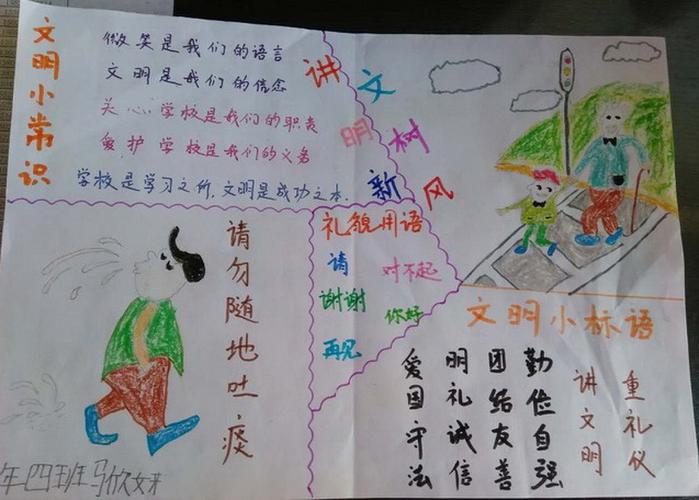 文明小常识
微笑是我们的语言
文明是我们的信念
关心学校是我们的职责
爱护学校是我们的义务
学校是学习之所,文明是成功之本.
讲文明树新风
礼貌用语
请
对不起
谢谢
你好
再见
请勿随地吐痰
文明小标语
重礼仪
讲文明
勤俭自强
团结友善
明礼诚信
爱国守法
年四班马欣